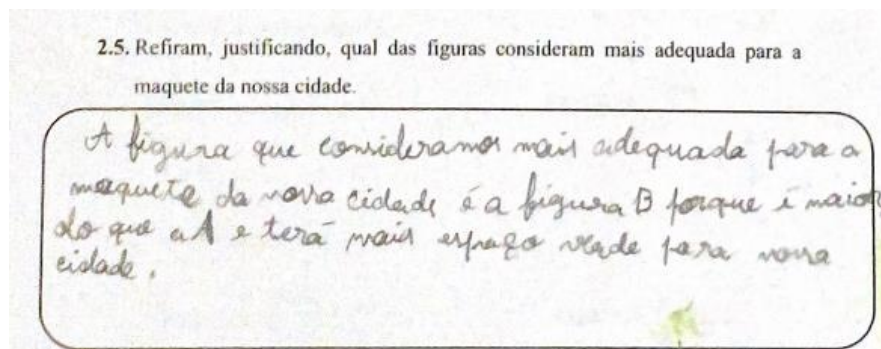 2.5. Refiram, justificando, qual das figuras consideram mais adequada para a
maquete da nossa cidade.
A figura que consideramos mais adequada para a
maquete da nossa cidade é a figura B porque é maior
do que a A e terá mais espaço verde para nossa
cidade.